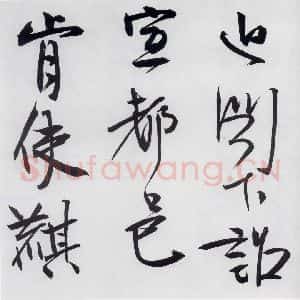 近聞下詔
宣都邑
肯使麒
Shufawang.CN